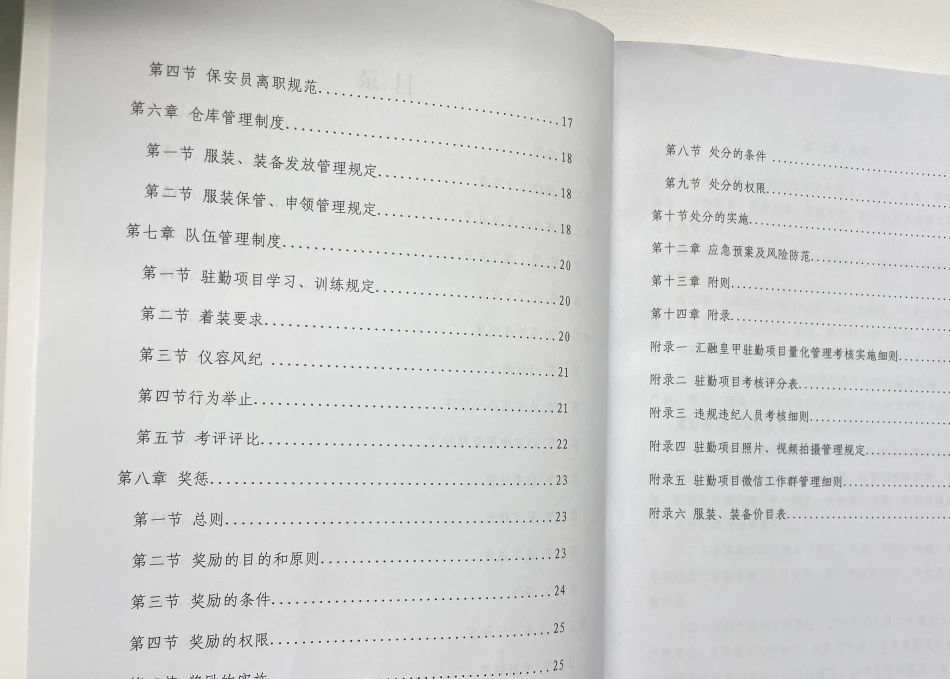 第四节 保安员离职规范........................17
第六章 仓库管理制度........................18
第一节 服装、装备发放管理规定........................18
第二节 服装保管、申领管理规定........................18
第七章 队伍管理制度........................20
第一节 驻勤项目学习、训练规定........................20
第二节 着装要求........................20
第三节 仪容风纪 ........................21
第四节行为举止........................21
第五节 考评评比........................22
第八章 奖惩........................23
第一节 总则........................23
第二节 奖励的目的和原则........................23
第三节 奖励的条件........................24
第四节 奖励的权限........................25
奖励的实施........................25
第八节 处分的条件 ........................
第九节 处分的权限........................
第十节处分的实施........................
第十二章 应急预案及风险防范........................
第十三章 附则........................
第十四章 附录........................
附录一 汇融皇甲驻勤项目量化管理考核实施细则........................
附录二 驻勤项目考核评分表........................
附录三 违规违纪人员考核细则........................
附录四 驻勤项目照片、视频拍摄管理规定........................
附录五 驻勤项目微信工作群管理细则........................
附录六 服装、装备价目表........................